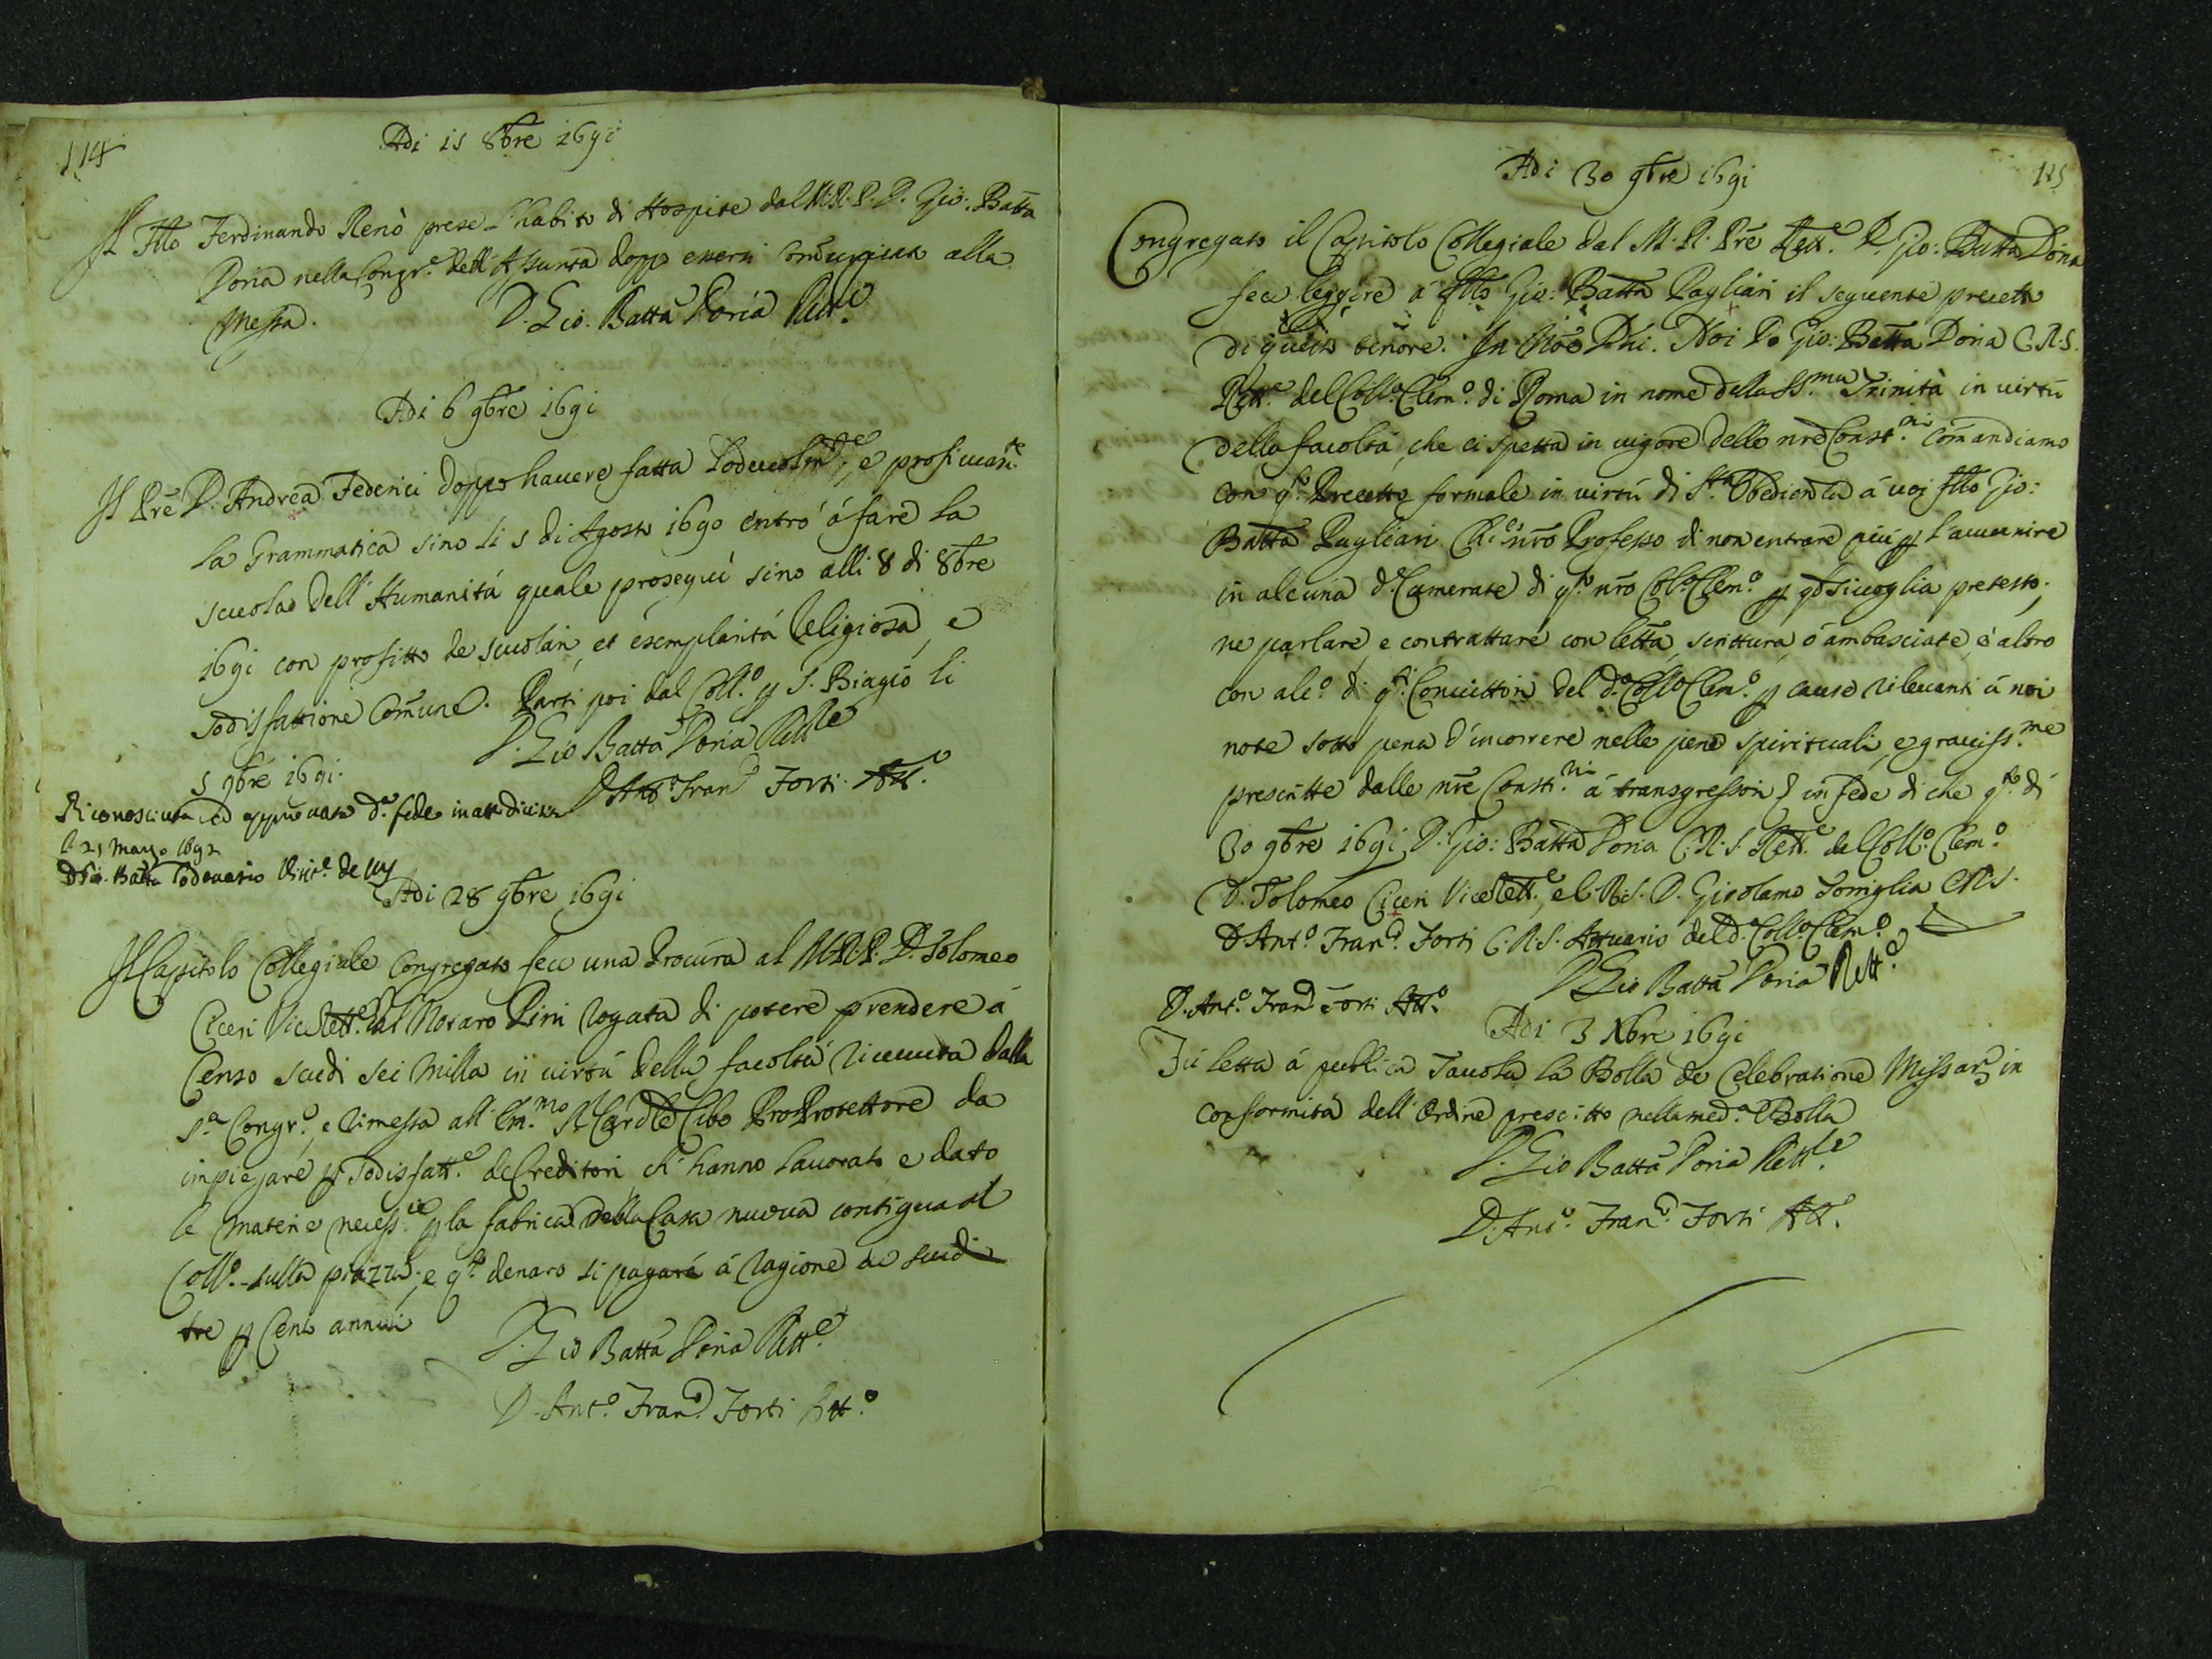 114
Adi 15 8bre 1691
Il Fllo Ferdinando Renò prese l'habito di Hospite dal M.R.P. D. Gio: Batta
Doria nella Congr.e dell'Assunta dopo essersi comunicato alla
Messa.
D. Gio. Batta Doria Rett.e
Adi 6 9bre 1691
Il Pre D. Andrea Federici doppo havere fatta lodevolmte, e
la Grammatica sino li 5 di Agosto 1690 entrò á fare la
scuola dell'Humanitá quale proseguì sino alli 8 di 8bre
1691 con profitto de scolari, et esemplaritá Religiosa, e
sodisfattione comune. Partì poi dal Coll.o p S. Biagio li
5 9bre 1691.
D. Gio Batta Doria Rett.e
D. Ant.o Fran.o Forti Att.o
Riconosciuta ed approvata d.a fede in atti di visita
li 21 Marzo 1692
Adi 28 9bre 1691
Il Capitolo Collegiale Congregato fece una Procura al M.R.P. D. Tolomeo
Ciceri Vicerett.e dal Notaro Pini rogata di potere prendere á
Censo scudi sei milla in virtú della facoltá ricevuta dalla
S.a Congr.e, e rimessa all'Em.mo S. Cardle Cibo ProProtettore da
impiegare p sodisfatt.e de Creditori, ch'hanno lavorato e dato
le materie necess.ie p la fabrica della Casa nuova contigua al
Coll.o sulla piazza; e q.to denaro si pagará á ragione de scudi
tre p Cento annui
D. Gio Batta Doria Rett.e
D. Ant.o Fran.o Forti Att.o
115
Adi 30 9bre 1691
Congregato il Capitolo Collegiale dal M.R. Pre Rett.e D. Gio: Batta Doria
fece leggere á fllo Gio: Batta Pagliari il seguente precetto
di questo tenore. In Noe Dni. Noi D. Gio: Batta Doria C.R.S.
Rett.e del Coll.o Clem.o di Roma in nome della SS.ma Trinità in virtú
della facoltá, che ci spetta in vigore delle nre Const.ni comandiamo
con q.to Precetto formale in virtú di S.ta Obedienza á voi fllo Gio:
Batta Pagliari Ch.o nro Professo di non entrare piú p l'avvenire
in alcuna d. Camerate di q.to nro Col.o Clem.o p qdsivoglia pretesto;
ne parlare, e contrattare con lettā, scrittura, ó ambasciate, ó altro
con alc.o di q.ti Convittori del d.o Coll.o Clem.o p cause rilevanti á noi
note sotto pena d'incorrere nelle pene spirituali, e graviss.me
prescritte dalle nre Consti.ni á transgressori in fede di che q.to dì
30 9bre 1691 D. Gio: Batta Doria C.R.S. Rett.e del Coll.o Clem.o
D. Tolomeo Ciceri Vicerett.e, el P. D. Girolamo Torriglia C.R.S.
D. Ant.o Fran.o Forti C.R.S. Attuario del d.o Coll.o Clem.o
D. Gio Batta Doria Rett.e
D. Ant.o Fran.o Forti Att.o
Adi 3 Xbre 1691
Fú letta á publica Tavola la Bolla de Celebratione Missar. in
conformitá dell'Ordine prescritto nella med.a Bolla
D. Gio Batta Doria Rett.e
D. Ant.o Fran.o Forti Att.o